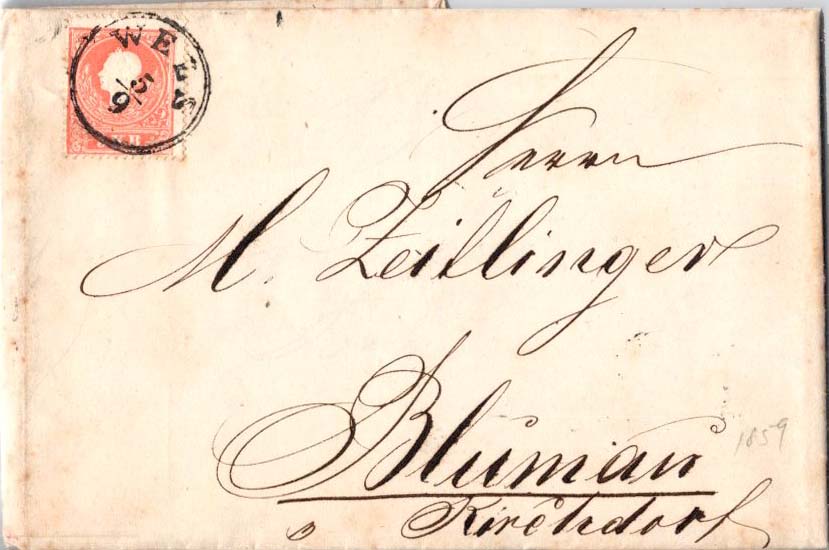 WELS
9/5
Herrn
M. Zeitlinger
Blumau
Kirchdorf
1859